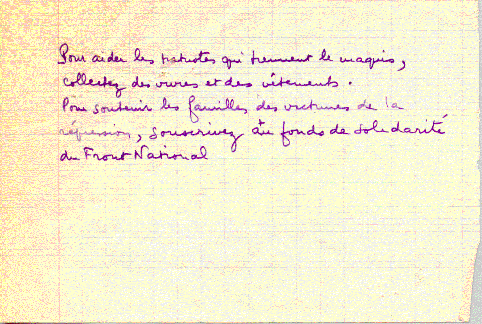 Pour aider les patriotes qui tiennent le maquis,
collectez des vivres et des vêtements.
Pour soutenir les familles des victimes de la
répression, souscrivez au fonds de solidarité
du Front National